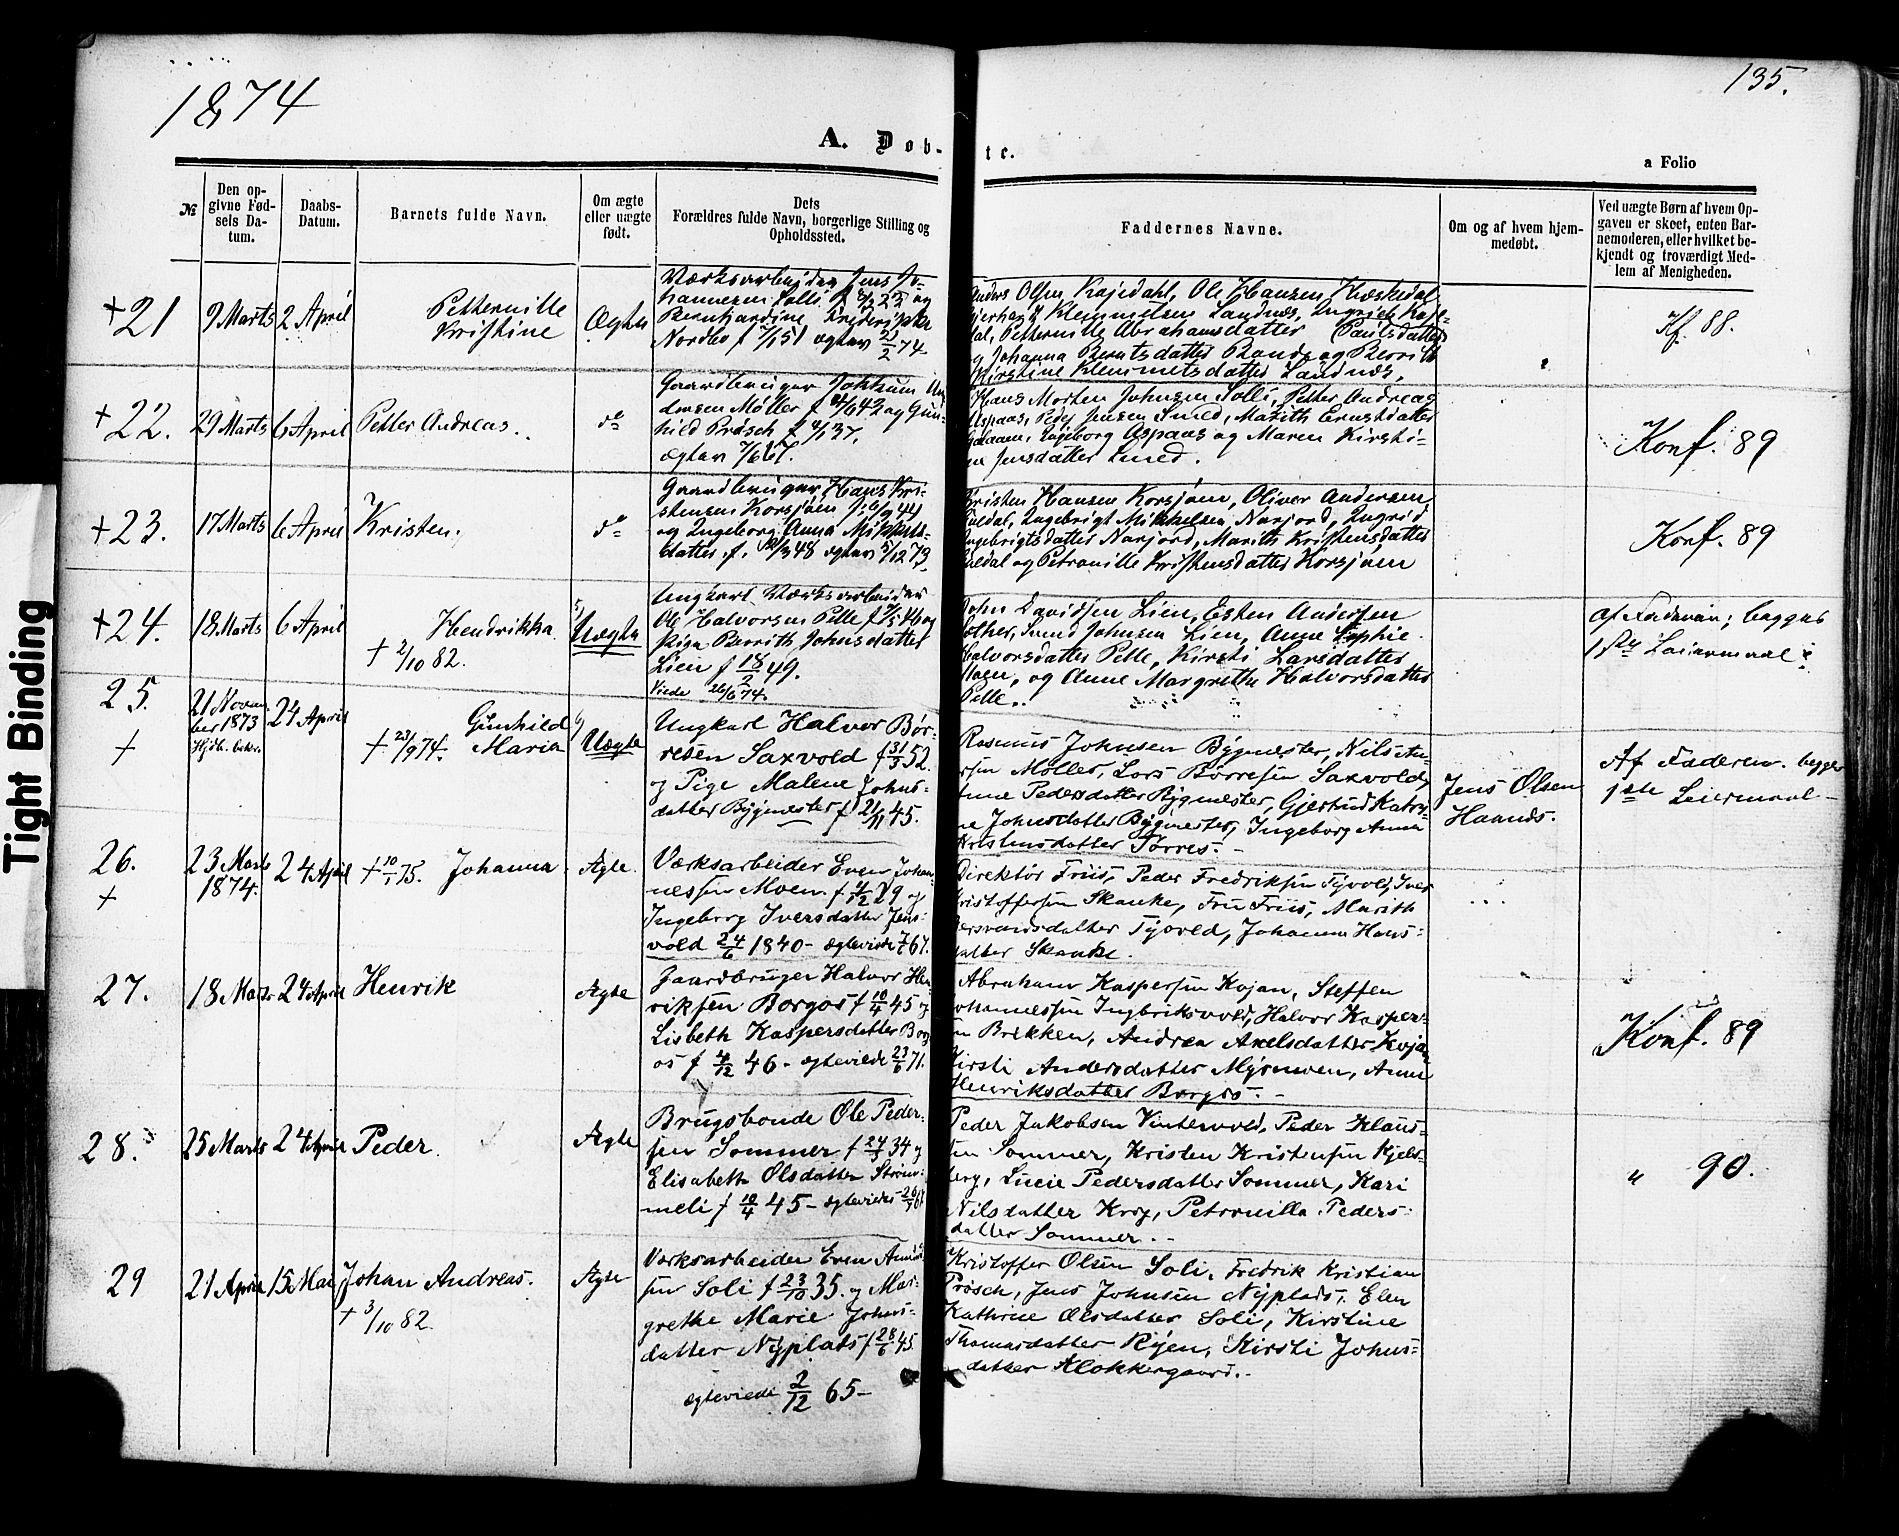 1874
135.
A. Døb-
te.
a Folio
Tight Binding
№
Den op-
givne Fød-
sels Da-
tum.
Daabs-
Datum.
Barnets fulde Navn.
Om ægte
eller uægte
født.
Dets
Forældres fulde Navn, borgerlige Stilling og
Opholdssted.
Faddernes Navne.
Om og af hvem hjem-
medøbt.
Ved uægte Børn af hvem Op-
gaven er skeet, enten Bar-
nemoderen, eller hvilket be-
kjendt og troværdigt Med-
lem af Menigheden.
+21
9 Marts
2 April
Petternille
Kristine
Ægte
Værksarbejder Jens Jo-
hannesen Solli
og
Bernhardine Frederikke
Nordbo
Anders Olsen Kajedahl, Ole Hansen
Klemmetsen Landnæs, Ingrid
dal, Petternille Abrahamsdatter (Paulsdatter)
og Johanna Berntsdatter Rand og Berrit
Kirstine Klemmetsdatter Landnæs.
Kf. 88.
+22.
29 Marts
6 April
Petter Andreas.
do
Gaardbruger Jokkum
dersen Møller
og Gun-
hild Prøsch
Hans Morten Johnsen Solli, Petter Andreas
Aspaas, Peder Jensen Smed, Marith Ernstdatter
Galaaen, Ingeborg Aspaas og Maren Kirsti-
ne Jensdatter Smed.
Konf. 89
+23.
17 Marts
6 April
Kristen.
do
Gaardbruger Hans Kri-
stensen Korsjøen
og Ingeborg Anna Mikkels-
datter f.
Kristen Hansen Korsjøen, Oliver Andersen
Galdal, Ingebrigt Mikkelsen Narjord, Ingrid
Ingebrigtsdatter Narjord, Marith Kristensdatter
Galdal og Petronille Kristensdatter Korsjøen
Konf. 89
+24.
18 Marts
6 April
Hendrikka.
+ 2/10 82.
Uægte
Ungkarl Værksarbeider
Ole Halvorsen Pelle
Pige Berrith Johnsdatter
Lien f 18/2 49.
Viede 26/6 74.
John Davidsen Lien, Esten Andersen
Kother, Svend Johnsen Lien, Anne Sophie
Halvorsdatter Pelle, Kirsti Larsdatter
Moen, og Anne Margrethe Halvorsdatter
Pelle.
af Faderen; begges
1ste Leiermaal
25.
+
21 Novem-
ber 1873
Hjdb. bekr.
24 April
Gunhild
Maria
+ 23/9 74.
Uægte
Ungkarl Halvor Bør-
resen Saxvold f 31/3 52.
og Pige Malene Johns-
datter Bygmester f 21/11 45.
Rasmus Johnsen Bygmester, Nils An-
dersen Møller, Lars Børresen Saxvold,
Anne Pedersdatter Bygmester, Gjertrud Katri-
ne Johnsdatter Bygmester, Ingeborg Anna
Kristensdatter Torres.
Jens Olsen
Haands.
Af Faderen. begges
1ste Leiermaal
26.
+
23 Marts
1874.
24 April
+ 10/1 75.
Johanna
Ægte.
Værksarbeider Even Johan-
nessen Moen f 4/12 29 og
Ingeborg Iversdatter Jens-
vold 24/6 1840 – ægteviede 67.
Direktør Friis, Peder Fredriksen Tyvold, Iver
Kristoffersen Skanke, Fru Friis, Marith
Tyvold, Johanna Hans-
datter Skanke.
27.
18 Marts
24 April
Henrik
Ægte
Gaardbruger Halvor Hen-
riksen Borgos f 10/4 45 og
Lisbeth Kaspersdatter Borg-
os f 4/12 46 – ægteviede 23/6 71.
Abraham Kaspersen Kojan, Steffen
Johannessen Ingbriksvold, Halvor Kasper-
sen Brekken, Andrea Axelsdatter Kojan
Kirsti Andersdatter Myrmoen, Anne
Henriksdatter Borgos.
Konf. 89
28.
25 Marts
24 April
Peder.
Ægte
Brugsbonde Ole Peder-
sen Sommer f 24/5 34 og
Elisabeth Olsdatter Strøm-
meli f 10/4 45 – ægteviede
Peder Jakobsen Vintervold, Peder Klaus-
sen Sommer, Kristen Kristensen Kjels-
berg, Lucie Pedersdatter Sommer, Kari
Nilsdatter Krog, Petronilla Peders-
datter Sommer.
" 90.
29
21 April
15 Mai
Johan Andreas.
+ 3/10 82.
Ægte
Værksarbeider Even
sen Soli f 23/10 35. og Mar-
grethe Marie Johns-
datter Nyplads f 28/6 45.
ægteviede 2/12 65 –
Kristoffer Olsen Soli, Fredrik Kristian
Prøsch, Jens Johnsen Nyplads, Elen
Kathrine Olsdatter Soli, Kirstine
Thomasdatter Ryen, Kirsti Johns-
datter Klokkergaard.